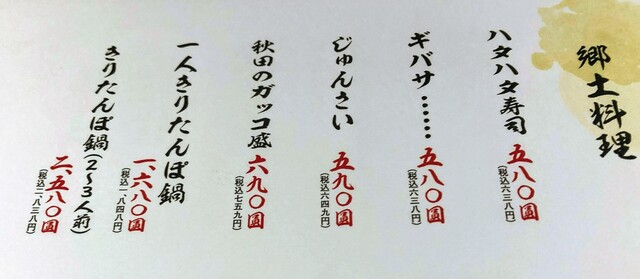 郷土料理
ハタハタ寿司 五八〇圓
(税込六三八円)
ギバサ…… 五八〇圓
(税込六三八円)
じゅんさい 五九〇圓
(税込六四九円)
秋田のガッコ盛 六九〇圓
(税込七五九円)
一人きりたんぽ鍋 一、六八〇圓
(税込一、八四八円)
きりたんぽ鍋(2~3人前) 二、五八〇圓
(税込二、八三八円)